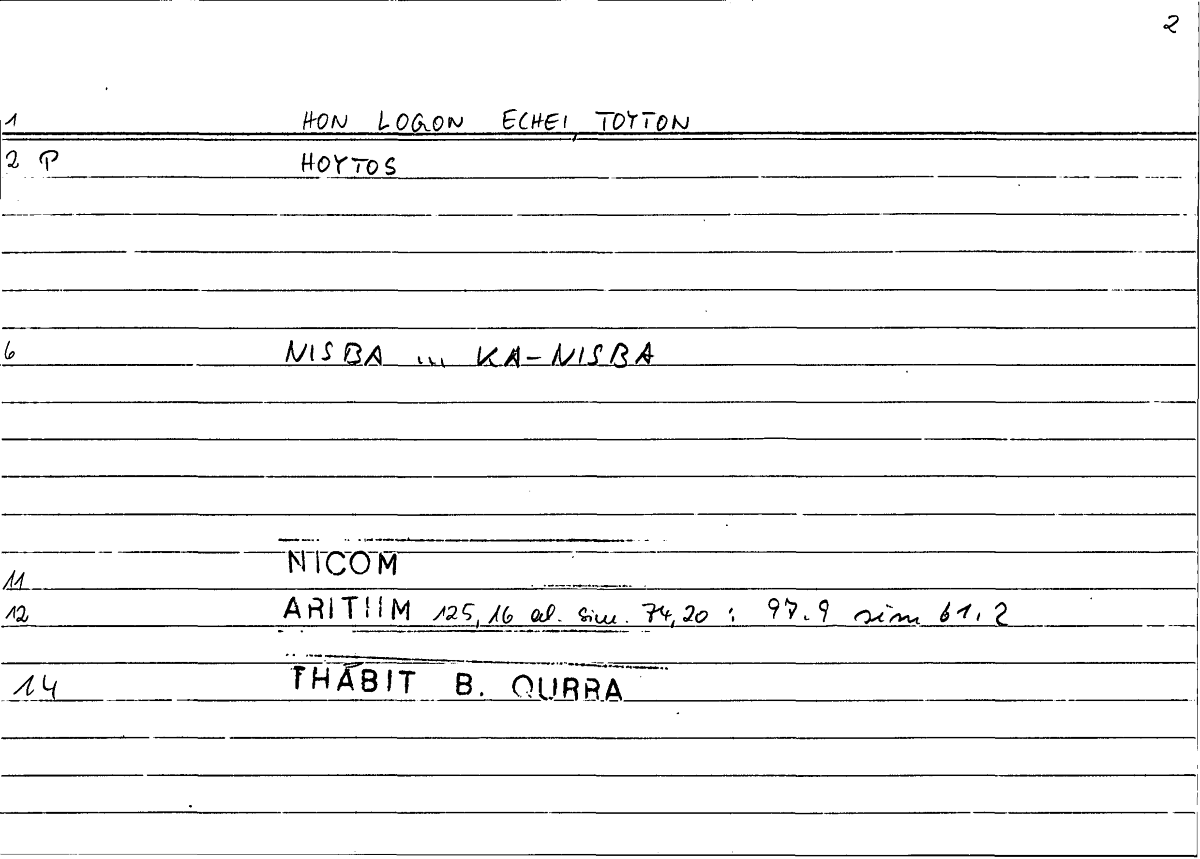 2
1 HON LOGON ECHEI, TOYTON
2 P HOYTOS
6 NISBA ... KA-NISBA
NICOM
11
12 ARITHM 125,16 al. sim. 74,20 : 97.9 sim 61.2
14 THĀBIT B. QURRA